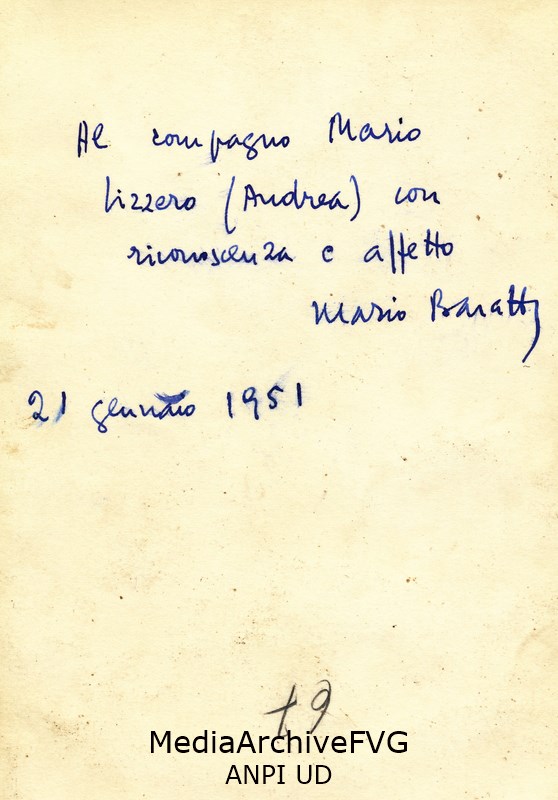 Al compagno Mario
Lizzero (Andrea) con
riconoscenza e affetto
Mario Baratt
21 gennaio 1951
19
MediaArchiveFVG
ANPI UD